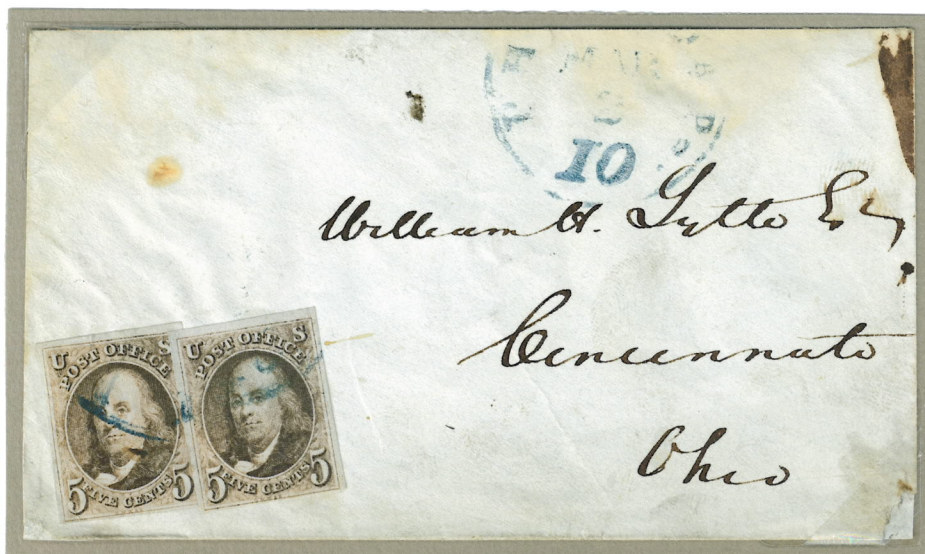 10
William H. Lytle Esq
Cincinnati
Ohio
U S
POST OFFICE
5 FIVE CENTS 5
U S
POST OFFICE
5 FIVE CENTS 5